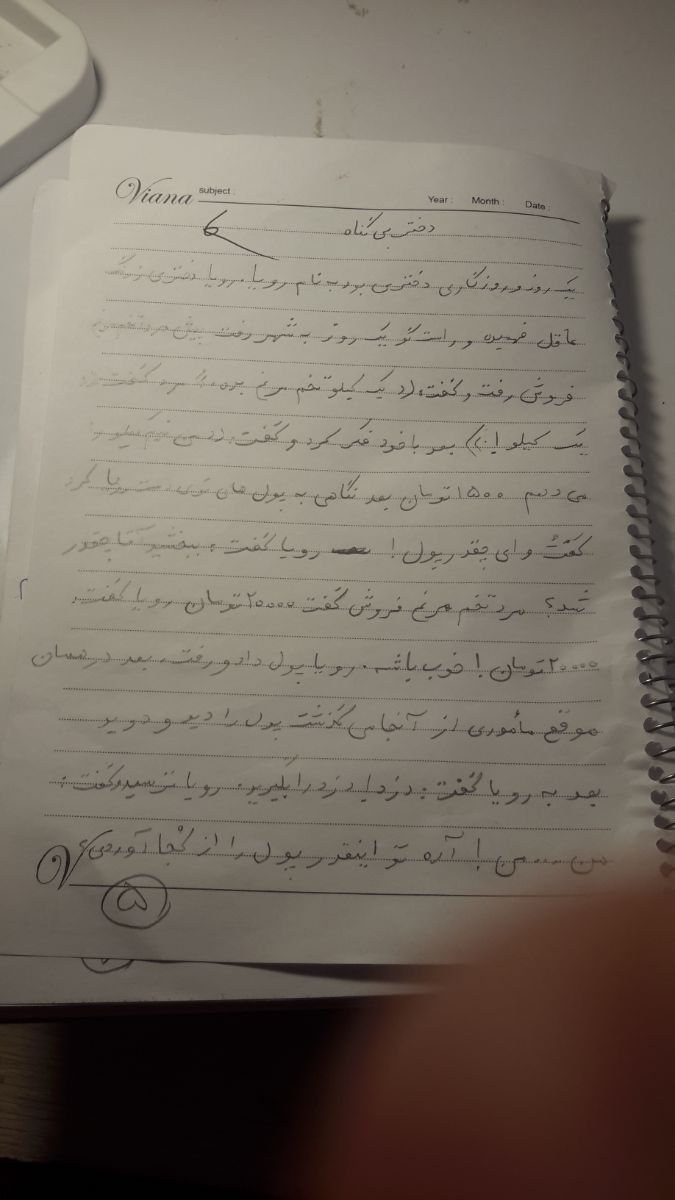 Viana subject :
Year : Month : Date :
دختر بی گناه 6
یک روز و روزگاری دختری بود به نام رویا. رویا دختری زرنگ
عاقل فهمیده و راستگو یک روز به شهر رفت پیش مرد تخم مرغ
فروش رفت و گفت: ((یک کیلو تخم مرغ بده.)) مرد گفت:((
یک کیلو!)) بعد با خود فکر کرد و گفت:((من نیم کیلو
می دهم ۱۵۰۰ تومان بعد نگاهی به پول های توی دست رویا کرد
گفت وای چقدر پول! رویا گفت: ببخشید آقا چقدر
شد؟ مرد تخم مرغ فروش گفت ۲۰۰۰۰ تومان رویا گفت:
۲۰۰۰۰ تومان! خوب باشه. رویا پول داد و رفت. بعد در همان
موقع مأموری از آنجا می گذشت پول را دید و دوید
بعد به رویا گفت: دزد! دزد را بگیرید. رویا ترسید و گفت:
من ... من! آره تو اینقدر پول را از کجا آوردی؟
۵